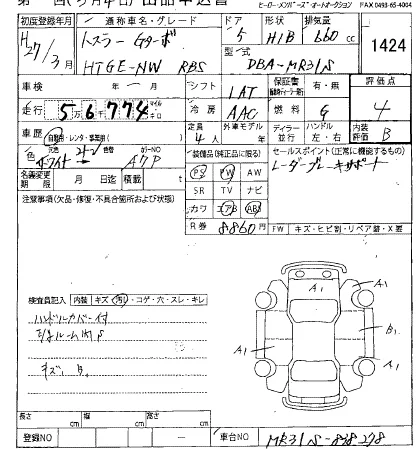 ヒーロー・メンバーズ・オートオークション FAX 0493-65-4004
初度登録年月 通称車名・グレード ドア 形状 排気量
H27/3月 5 H/B 660 cc 1424
型式
HTGE-NW RBS DBA-MR31S
車検 年 月 シフト 1AT 保証書 有・無 評価点
走行 56774 冷房 AAC 燃料 G 4
車歴 自家用・レンタ・事業用 定員 4人 外車モデル 年 ディーラー 並行 ハンドル 左・右 内装評価 B
色 元色 色替 カラーNO A7P
装備品(純正品に限る) セールスポイント(正常に機能するもの)
名義変更期限 月 日迄 積載 t
PS PW AW レーダーブレーキサポート
注意事項(欠品・修復・不具合箇所および状態)
SR TV ナビ
カワ エアB ABS
R券 8860円 FW キズ・ヒビ割・リペア跡・X要
検査員記入 内装 キズ・汚・コゲ・穴・スレ・キレ
ハンドルカバー付
キズ、B。
A1
A1
B1
A1
A1
長さ cm 幅 cm 高さ cm
登録NO 車台NO MR31S-838278